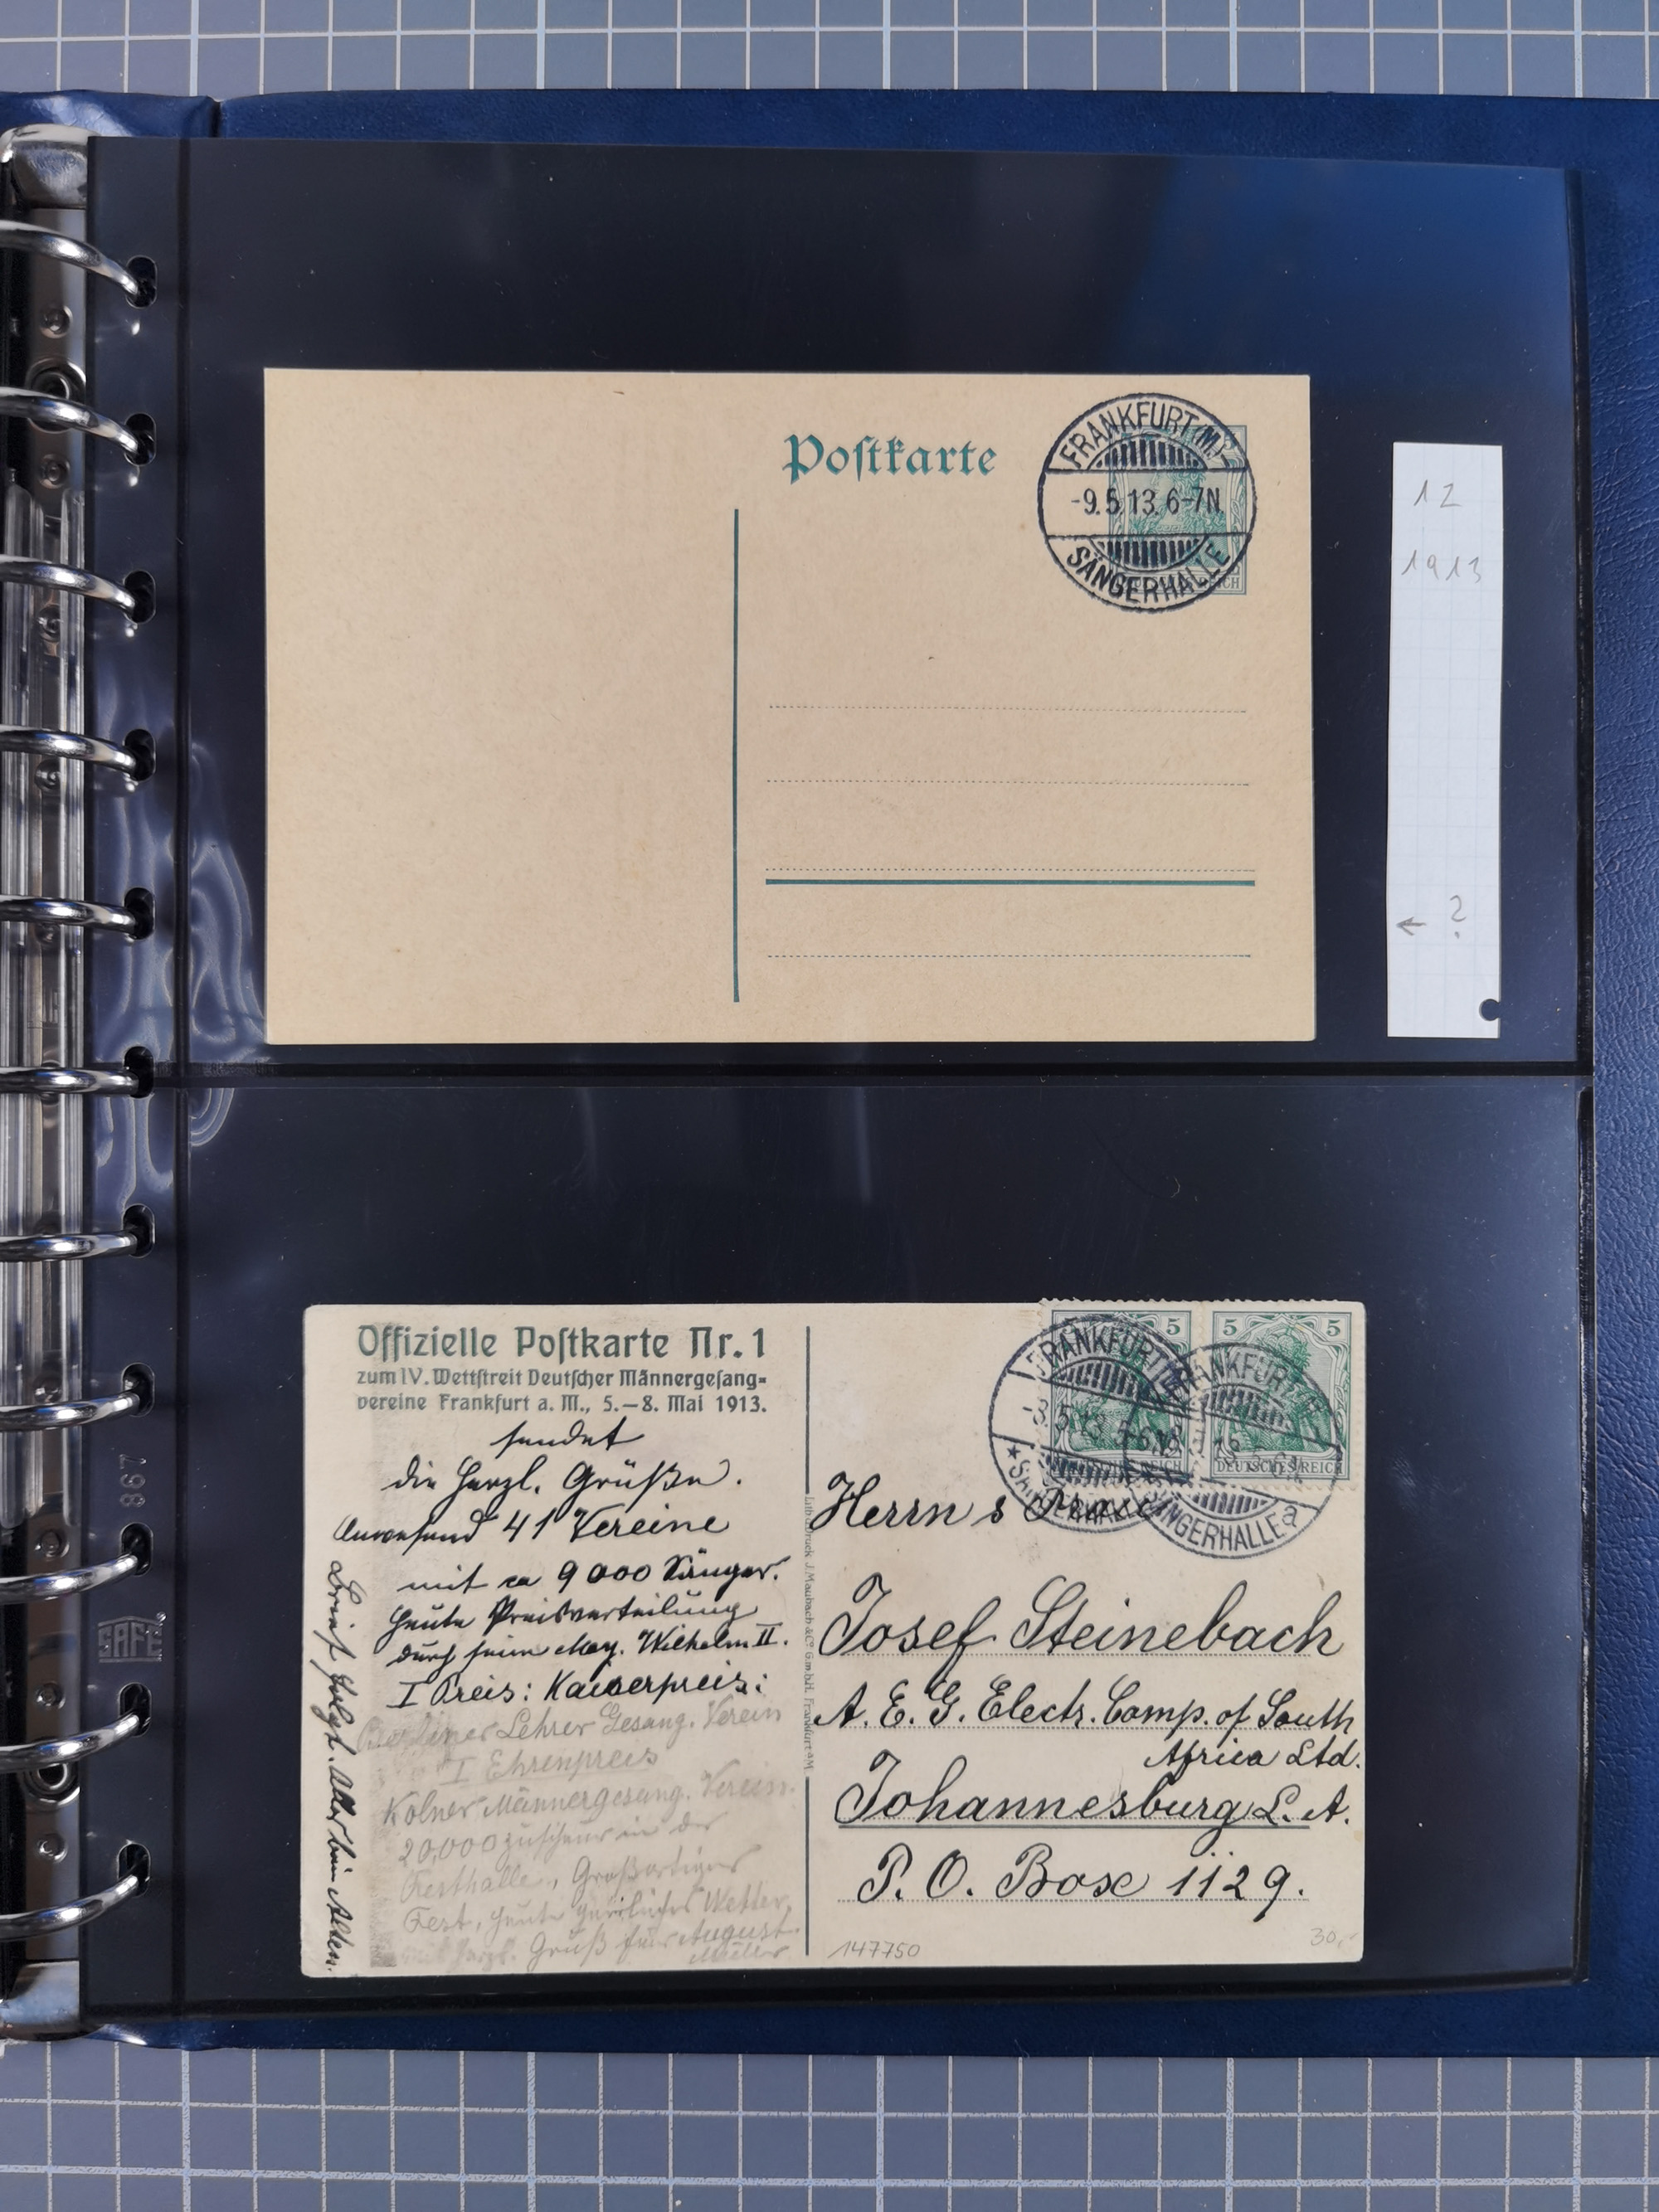 Postkarte
FRANKFURT (M.)
-9.5.13.6-7N.
SÄNGERHALLE
REICH
12
1913
← ?
Offizielle Postkarte Nr. 1
zum IV. Wettstreit Deutscher Männergesang=
vereine Frankfurt a. M., 5.–8. Mai 1913.
sendet
die herzl. Grüße.
Anwesend 41 Vereine
mit ca 9000 Sänger.
Heute Preisverteilung
durch seine May. Wilhelm II.
I Preis: Kaiserpreis:
Berliner Lehrer Gesang. Verein
I Ehrenpreis
Kölner Männergesang. Verein.
20,000 Zuschauer in der
Festhalle, Großartiges
Fest, heute herrliches Wetter.
Gruß August
Müller
Brief folgt.
5 5 5
DEUTSCHES REICH
FRANKFURT
SÄNGERHALLE a
Herrn
Josef Steinebach
A. E. G. Electr. Comp. of South
Africa Ltd.
Johannesburg S. A.
P. O. Box 1129.
Lith. u. Druck J. Maubach & Co. G.m.b.H. Frankfurt a/M
147750
30,-
867
SAFE